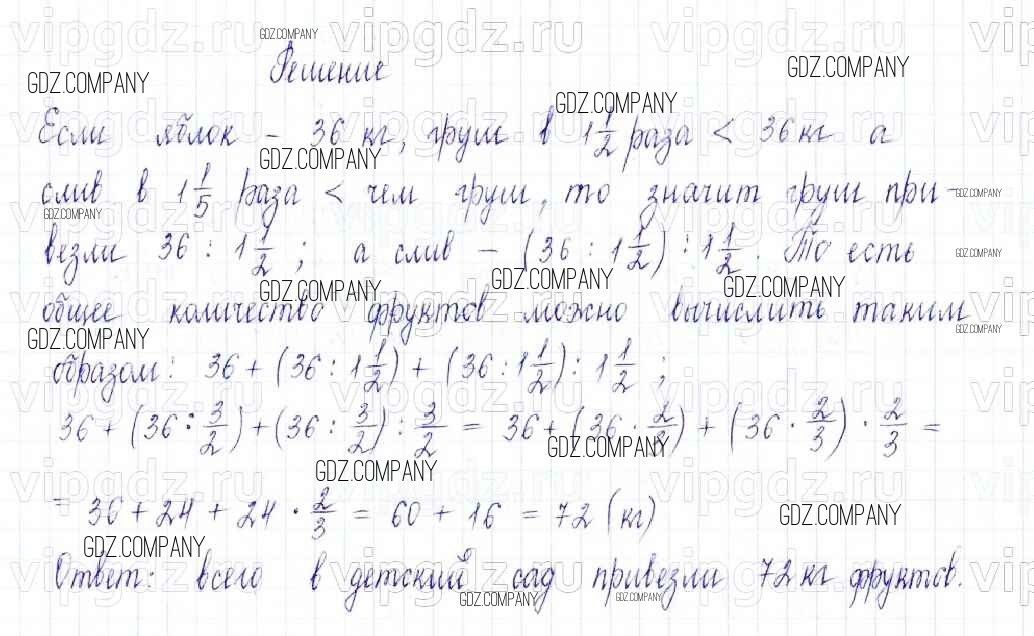 Решение
Если яблок - 36 кг, груш в 1 1/2 раза < 36 кг а
слив в 1 1/5 раза < чем груш, то значит груш при-
везли 36 : 1 1/2 ; а слив - (36 : 1 1/2) : 1 1/2. То есть
общее количество фруктов можно вычислить таким
образом: 36 + (36 : 1 1/2) + (36 : 1 1/2) : 1 1/2 ;
36 + (36 : 3/2) + (36 : 3/2) : 3/2 = 36 + (36 · 2/3) + (36 · 2/3) · 2/3 =
= 36 + 24 + 24 · 2/3 = 60 + 16 = 72 (кг)
Ответ: всего в детский сад привезли 72 кг фруктов.
GDZ.COMPANY
vipgdz.ru